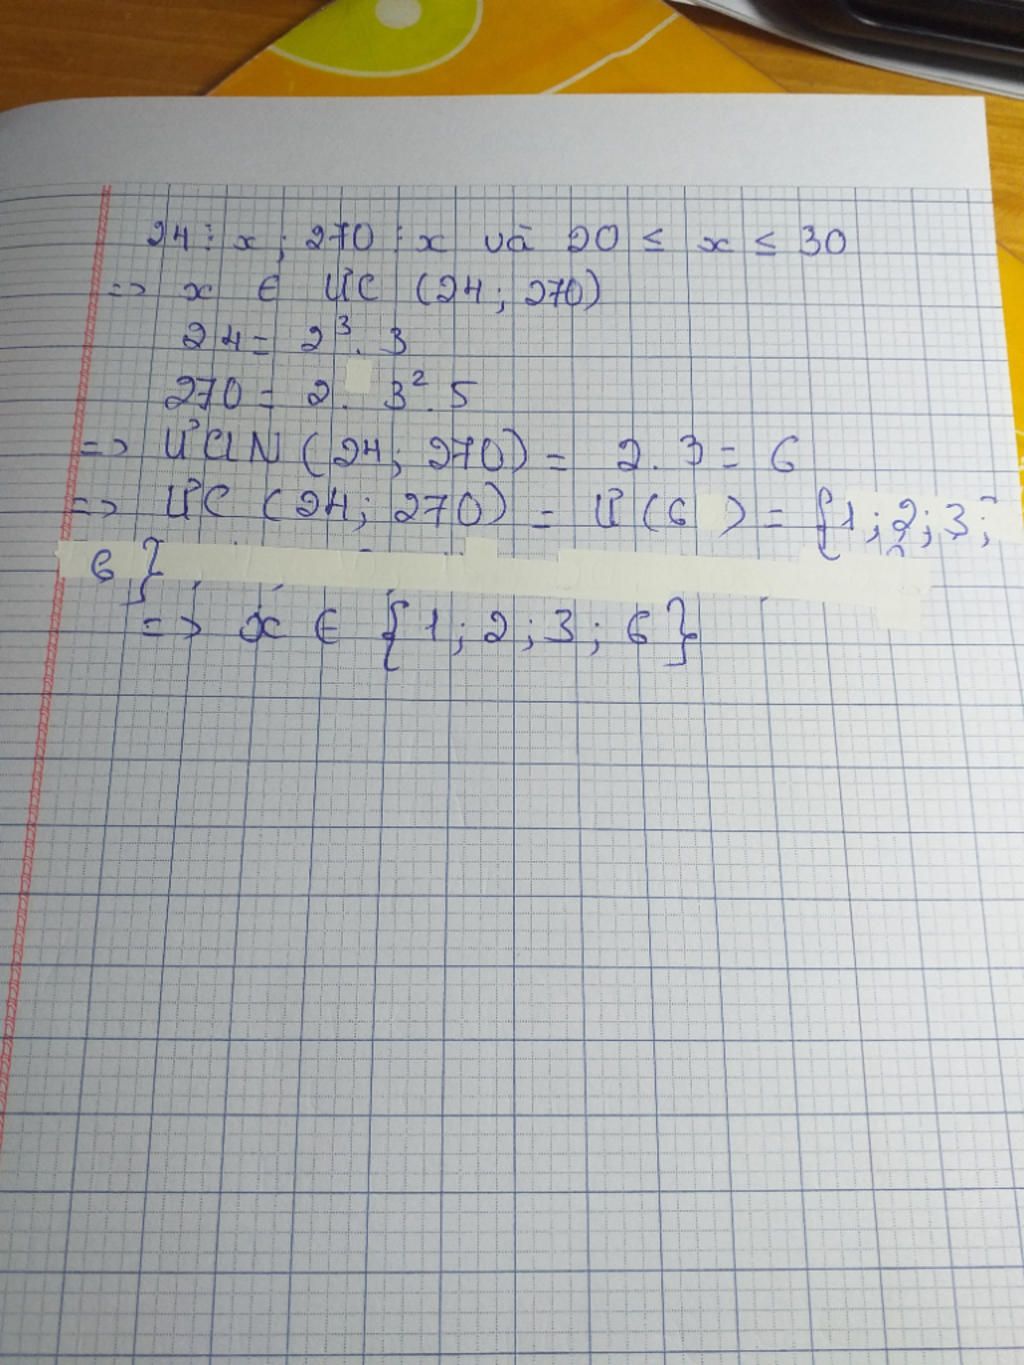 24 ⋮ x ; 270 ⋮ x và 20 ≤ x ≤ 30
=> x ∈ ƯC (24 ; 270)
24 = 2³ . 3
270 = 2 . 3² . 5
=> ƯCLN (24 ; 270) = 2 . 3 = 6
=> ƯC (24 ; 270) = Ư (6) = {1 ; 2 ; 3 ;
6}
=> x ∈ {1 ; 2 ; 3 ; 6}